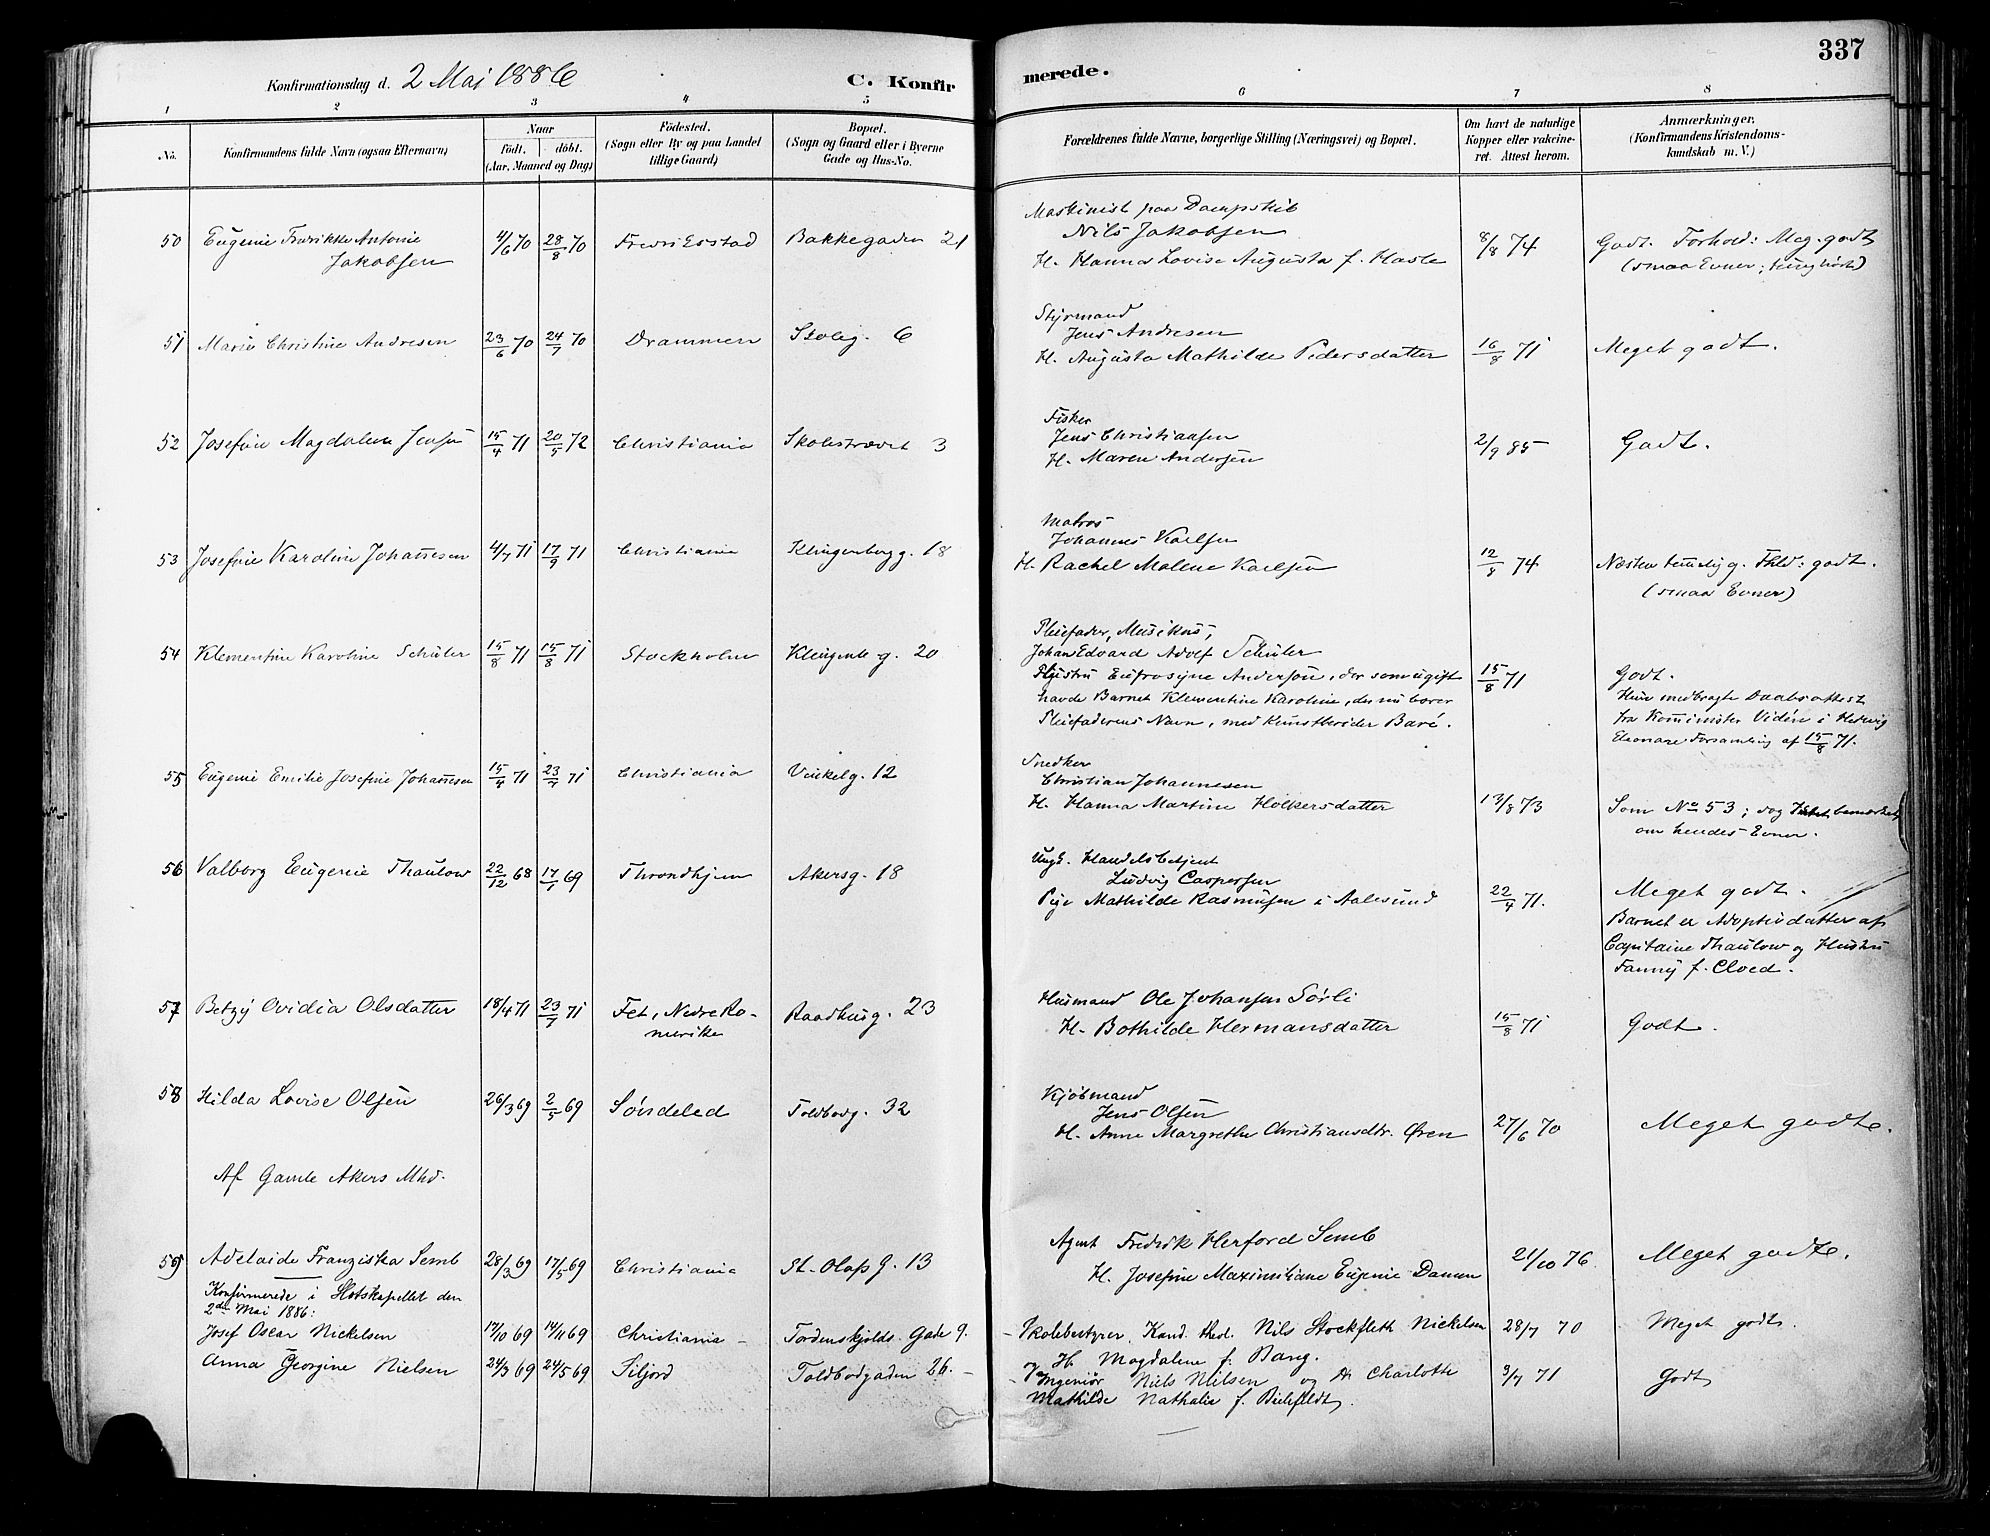 337
Konfirmationsdag d. 2 Mai 1886 C. Konfirmerede.
1 2 3 4 5 6 7 8
No. Konfirmandens fulde Navn (ogsaa Efternavn) Naar født. døbt. (Aar, Maaned og Dag) Fødested. (Sogn eller By og paa Landet tillige Gaard) Bopæl. (Sogn og Gaard eller i Byerne Gade og Hus-No. Forældrenes fulde Navne, borgerlige Stilling (Næringsvei) og Bopæl. Om havt de naturlige Kopper eller vakcineret. Attest herom. Anmærkninger. (Konfirmandens Kristendomskundskab m. V.)
Maskinist paa Dampskib
50 Eugenie Fredrikke Antonie 4/6 70 28/8 70 Fredriksstad Bakkegaden 21 Nils Jakobsen 8/8 74 Godt. Forhold: Meg. godt
Jakobsen H. Hanna Lovise Augusta f. Hasle (smaa Evner;
Styrmand
51 Marie Christine Andresen 23/6 70 24/7 70 Drammen Skoleg. 6 Jens Andresen
H. Augusta Mathilde Pedersdatter 16/8 71 Meget godt.
Fisker
52 Josefine Magdalene Jensen 15/4 71 20/5 72 Christiania Skolestrædet 3 Jens Christiansen 2/9 85 Godt.
H. Maren Andersen
Matros
53 Josefine Karoline Johannesen 4/7 71 17/9 71 Christiania Klingenbergg. 18 Johannes Karlsen
H. Rachel Malene Karlsen 12/8 74 Næsten temmelig g. Fhld: godt.
(smaa Evner)
Pleiefader, Musikus,
54 Klementine Karoline Schüler 15/8 71 15/8 71 Stockholm Klingenb. g. 20 Johan Edvard Adolf Schüler
Hustru Eufrosyne Anderson, der som ugift 15/8 71 Godt.
havde Barnet Klementine Karoline, der nu bærer Hun medbragte Daabsattest
Pleiefaderens Navn, med Kunstberider Baré. fra Komminister Vidén i Hedvig
Eleonore Forsamling af 15/8 71.
Snedker
55 Eugenie Emilie Josefine Johannesen 15/4 71 23/7 71 Christiania Vinkelg. 12 Christian Johannesen
H. Hanna Martine Holkersdatter 13/8 73 Som No 53; dog Intet bemærket
om hendes Evner.
Ungk. Handelsbetjent
56 Valborg Eugenie Thaulow 22/12 68 17/1 69 Throndhjem Akersg. 18 Ludvig Caspersen
Pige Mathilde Rasmussen i Aalesund 22/4 71. Meget godt.
Barnet er Adoptivdatter af
Capitaine Thaulow og Hustru
Fanny f. Cloed.
57 Betzy Ovidia Olsdatter 18/4 71 23/7 71 Fet, Nedre Ro- Raadhusg. 23 Husmand Ole Johansen Sørli
merike H. Bothilde Hermansdatter 15/8 71 Godt.
Kjøbmand
58 Hilda Lovise Olsen 26/3 69 2/5 69 Søndeled Toldbodg. 32 Jens Olsen
H. Anne Margrethe Christiansdtr. Øren 27/6 70 Meget godt.
Af Gamle Akers Mhd.
59 Adelaide Franziska Semb 28/3 69 17/5 69 Christiania St. Olafs G. 13 Agent Fredrik Herford Semb 21/10 76 Meget godt.
H. Josefine Maximiliane Eugenie Damm
Konfirmerede i Slotskapellet den
2den Mai 1886:
Josef Oscar Nickelsen 17/10 69 14/11 69 Christiania - Tordenskjolds Gade 9. - Skolebestyrer, Kand. theol. Nils Stockfleth Nickelsen 28/7 70 Meget godt.
og H. Magdalene f. Bang.
Anna Georgine Nielsen 24/3 69 24/5 69 Siljord Toldbodgaden 26. - Ingeniør Niels Nielsen og H. Charlotte 3/7 71 Godt
Mathilde Nathalie f. Bielefeldt.